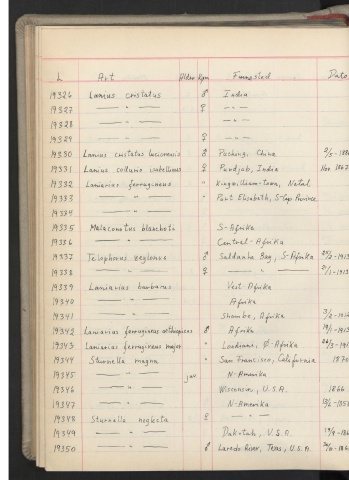 L Art Alder Kjønn Funnsted Dato
19326 Lanius cristatus ♂ India
19327 — " — ♀ — " —
19328 — " — — " —
19329 — " — ♀ — " —
19330 Lanius cristatus lucionensis ♂ Peching, China
19331 Lanius collurio isabellinus ♀ Pundjab, India Nov. 1867
19332 Laniarius ferrugineus " King-William-Town, Natal
19333 — " — " Port Elisabeth, S-Cap Province
19334 — " —
19335 Malaconotus blanchoti S-Afrika
19336 — " — Central-Afrika
19337 Telophorus zeylonus ♂ Saldanha Bay, S-Afrika
19338 — " — ♀ — " —
19339 Laniarius barbarus Vest Afrika
19340 — " — Afrika
19341 — " — Shombo, Afrika
19342 Laniarius ferrugineus aethiopicus ♂ Afrika
19343 Laniarius ferrugineus major " Ø-Afrika
19344 Sturnella magna " San Francisco, California 1870
19345 — " — juv. N-Amerika
19346 — " — Wisconsin, U.S.A. 1866
19347 — " — N-Amerika
19348 Sturnella neglecta ♀ — " —
19349 — " — Dakotah, U.S.A.
19350 — " — ♂ Laredo River, Texas, U.S.A.